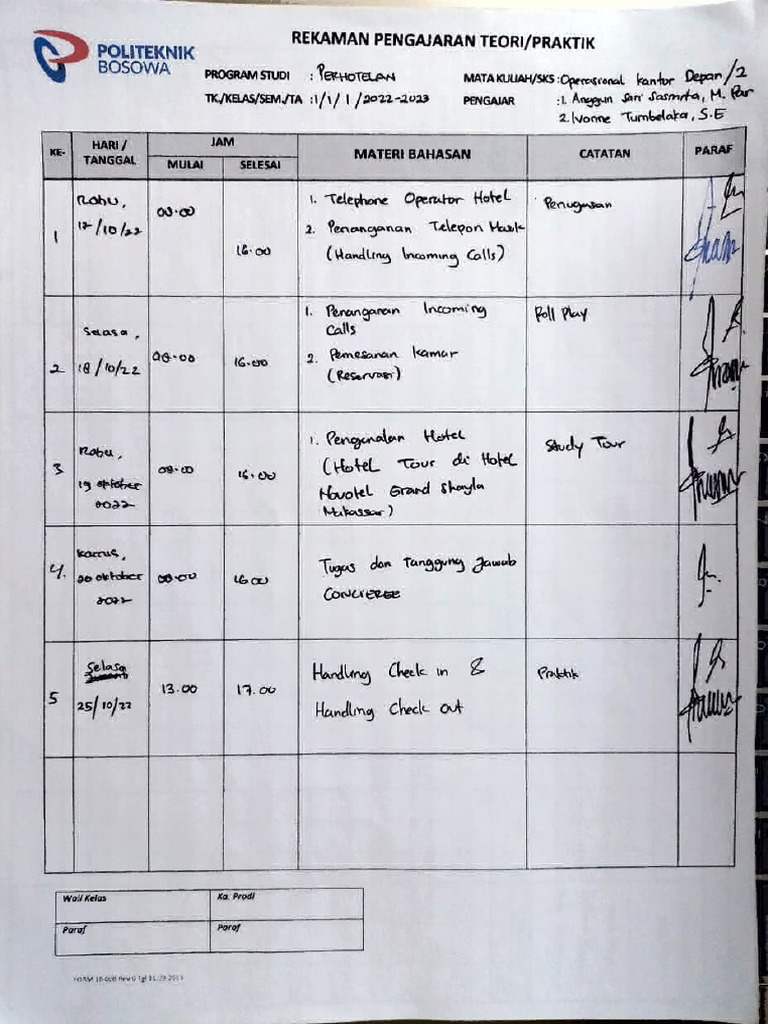 POLITEKNIK
BOSOWA
REKAMAN PENGAJARAN TEORI/PRAKTIK
PROGRAM STUDI : PERHOTELAN
MATA KULIAH/SKS : Operasional kantor Depan / 2
TK./KELAS/SEM./TA : 1 / 1 / 1 / 2022-2023
PENGAJAR : 1. Anggun Sari Sasmita, M. Par
2. Ivonne Tumbelaka, S.E
KE- HARI / TANGGAL JAM MATERI BAHASAN CATATAN PARAF
MULAI SELESAI
1 Rabu, 12/10/22 08.00 16.00
1. Telephone Operator Hotel
2. Penanganan Telepon Masuk
(Handling Incoming Calls)
Penugasan
2 Selasa, 18/10/22 08.00 16.00
1. Penanganan Incoming
Calls
2. Pemesanan kamar
(Reservasi)
Roll Play
3 Rabu, 19 oktober 2022 08.00 16.00
1. Pengenalan Hotel
(Hotel Tour di Hotel
Novotel Grand Shayla
Makassar)
Study Tour
4. Kamis, 20 oktober 2022 08.00 16.00
Tugas dan Tanggung Jawab
CONCIERGE
5 Selasa 25/10/22 13.00 17.00
Handling Check in &
Handling Check out
Praktik
Wali Kelas Ka. Prodi
Paraf Paraf